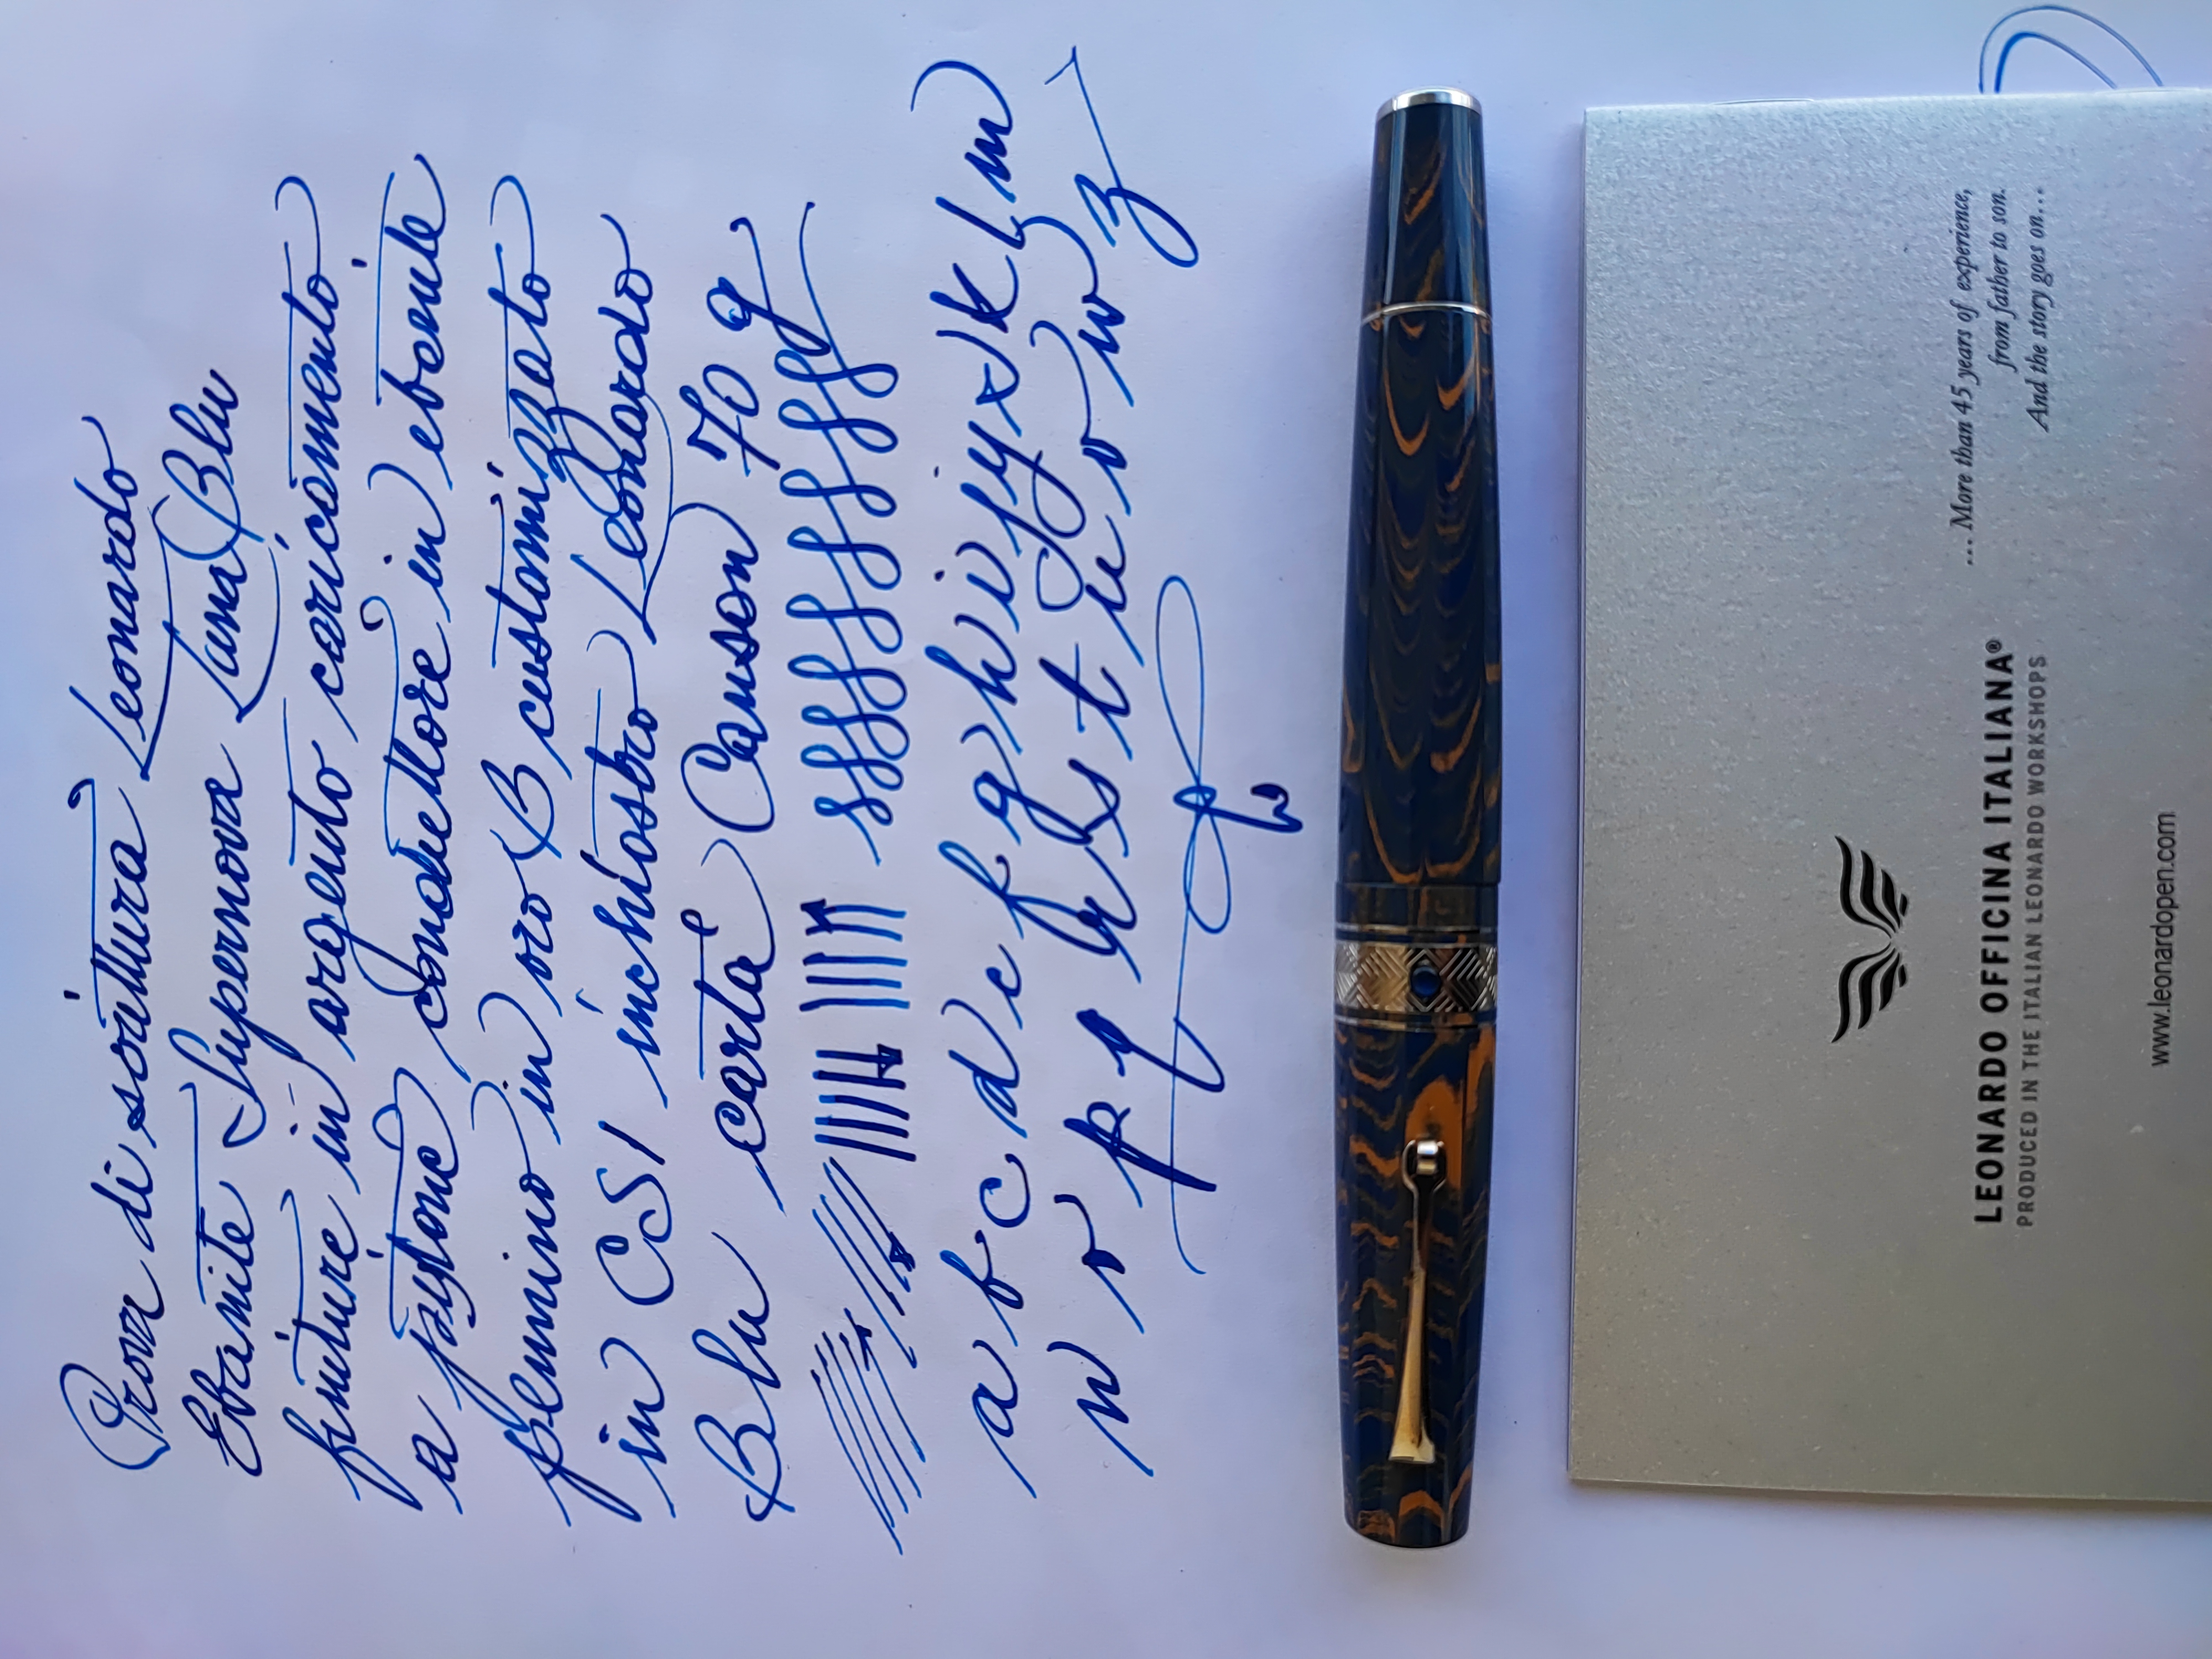 Prova di scrittura Leonardo
Ebanite Supernova Luna Blu
finiture in argento caricamento
a pistone conduttore in ebanite
pennino in oro B customizzato
in CSI inchiostro Leonardo
Blu carta Canson 70 g
a b c d e f g h i j y x k l m
n o p q r s t u v w z
... More than 45 years of experience,
from father to son.
And the story goes on...
LEONARDO OFFICINA ITALIANA®
PRODUCED IN THE ITALIAN LEONARDO WORKSHOPS
www.leonardopen.com